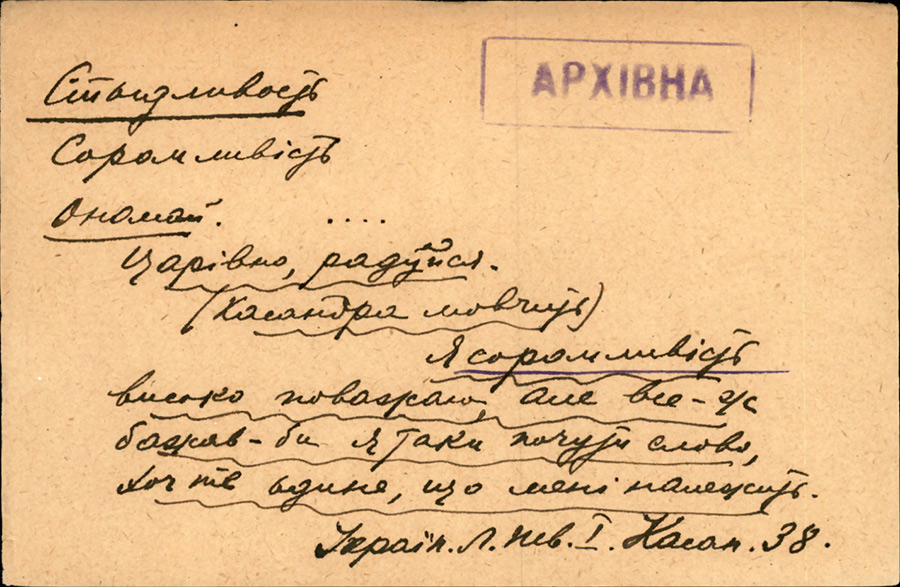 АРХІВНА
Стыдливость
Соромливість
Ономай. ....
Царівно, радуйся.
(Касандра мовчить)
Я соромливість
високо поважаю, але все-ж
бажав-би я таки почути слово,
хоч те єдине, що мені належить.
Україн. Л. І. Касан. 38.